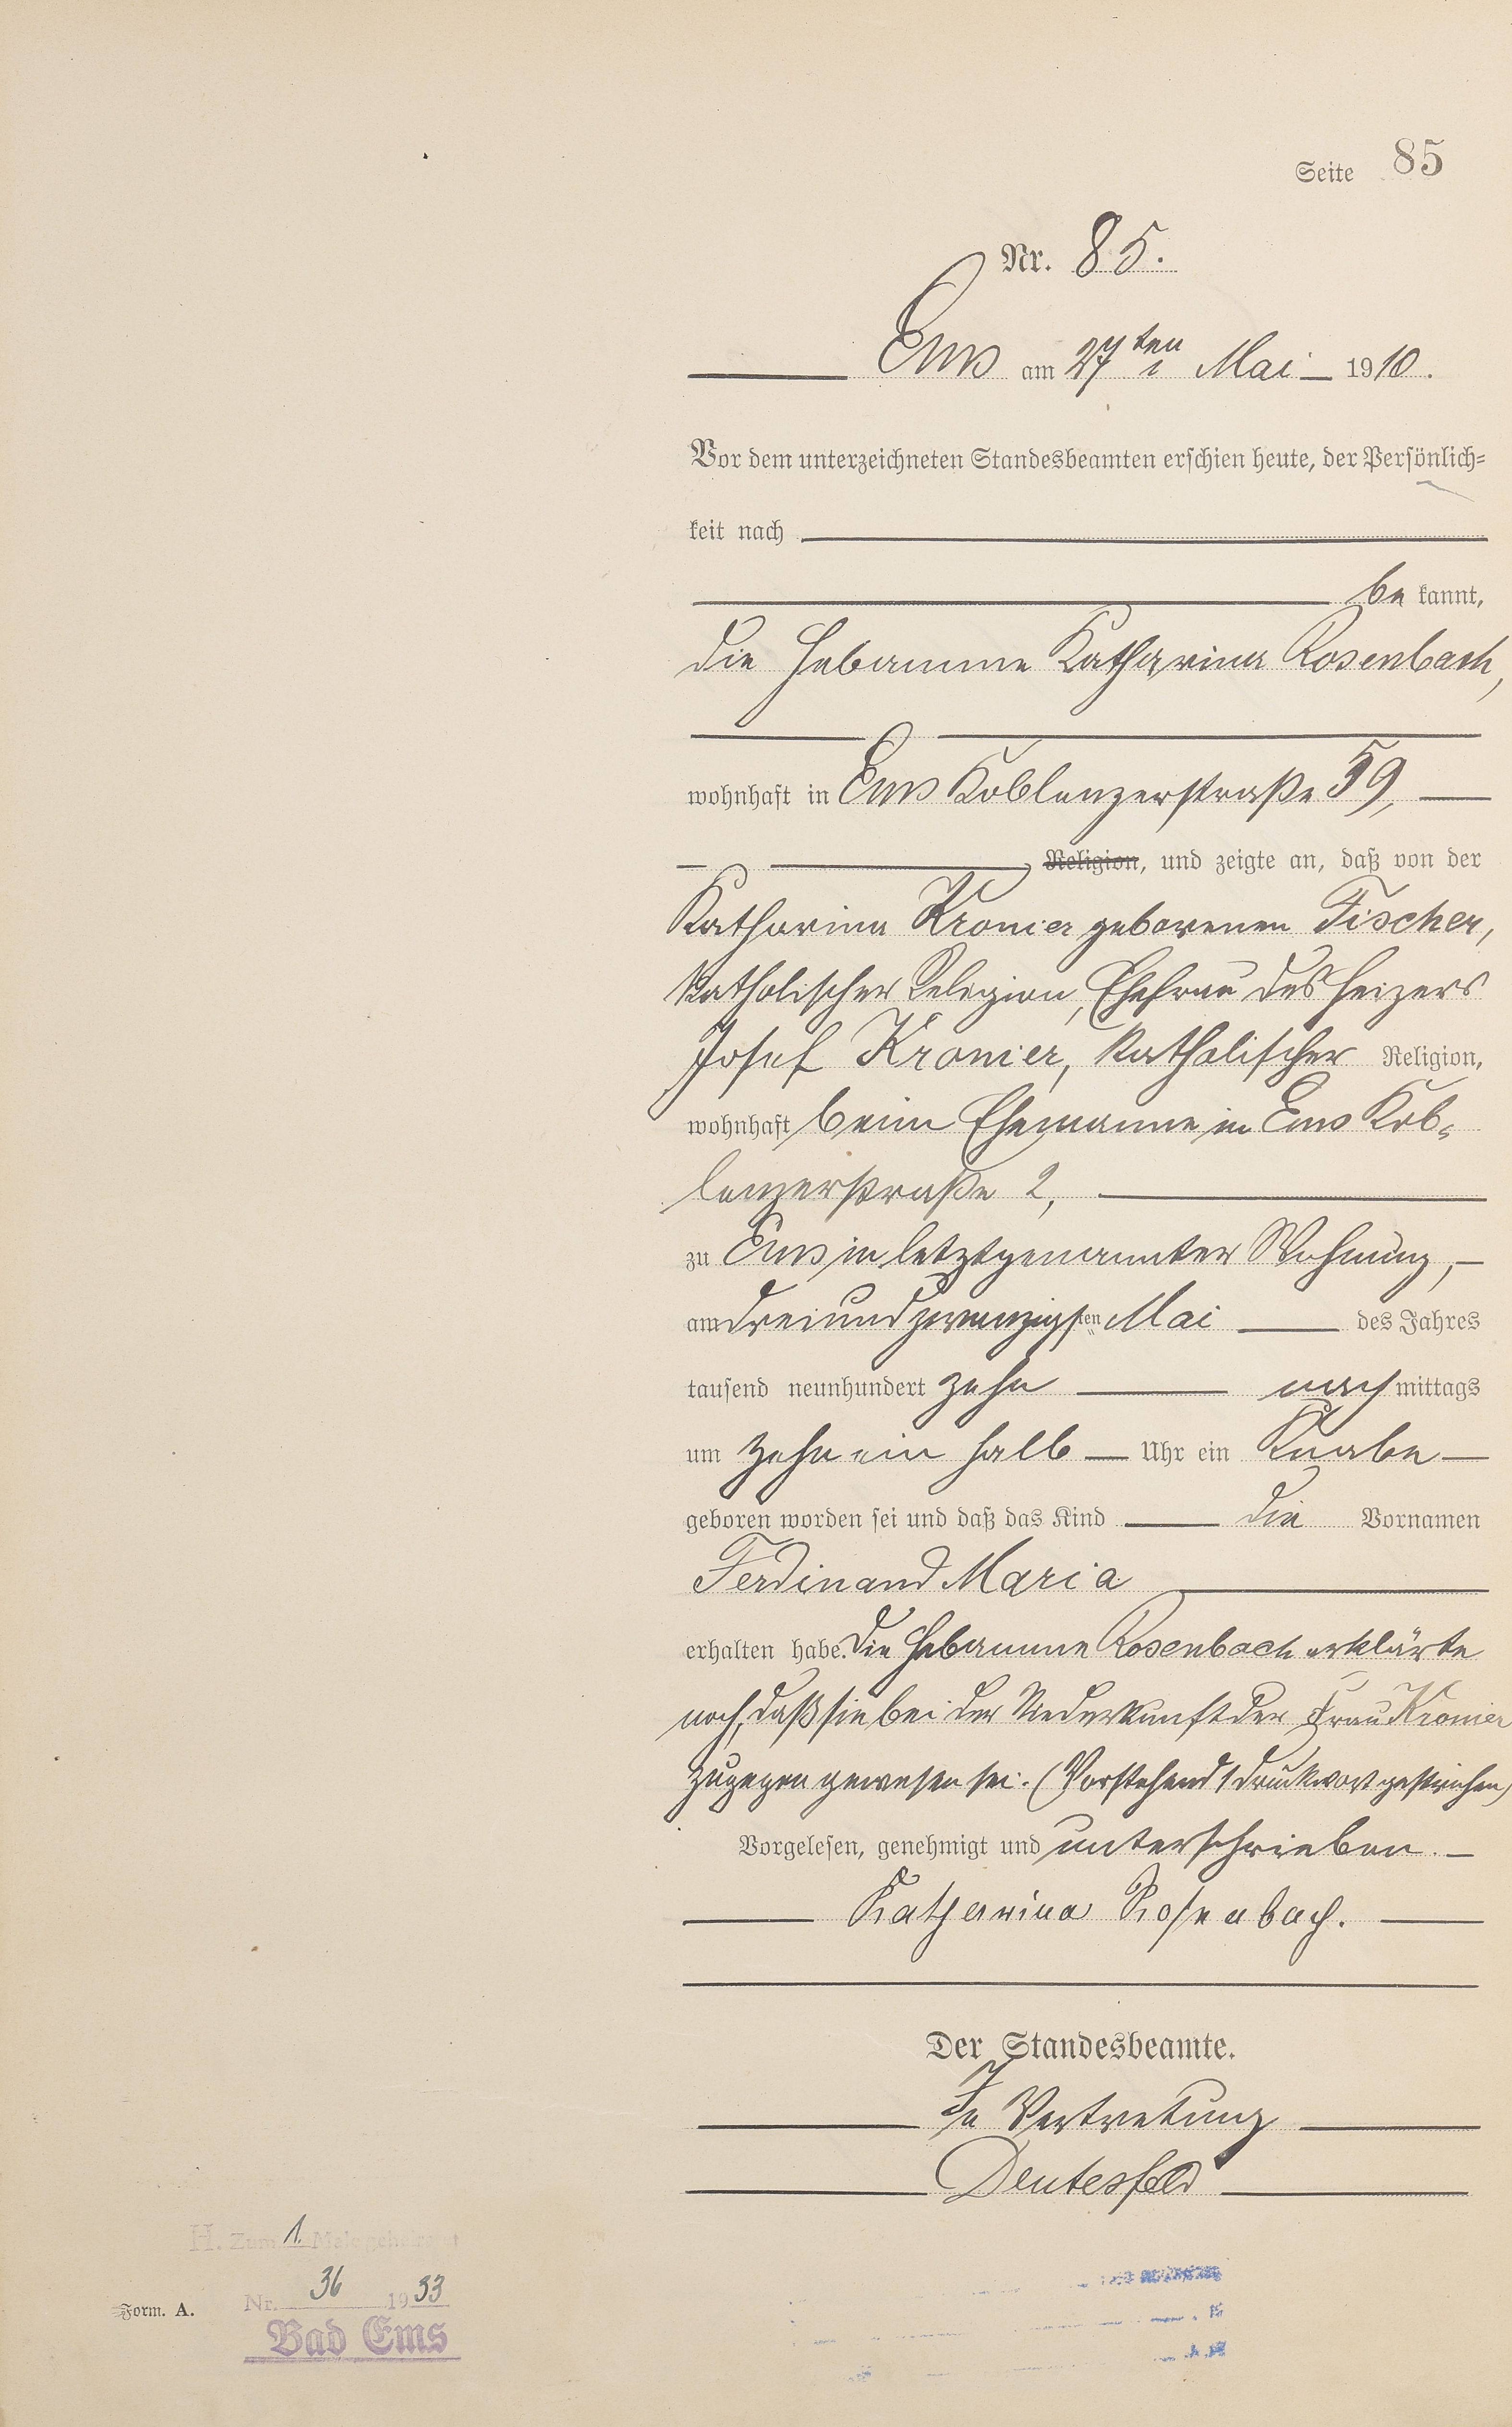 Seite 85
Nr. 85.
Ems am 27ten Mai 1910.
Vor dem unterzeichneten Standesbeamten erschien heute, der Persönlich-
keit nach
be kannt,
die Hebamme Katharina Rosenbach,
wohnhaft in Ems Koblenzerstraße 59,
Religion, und zeigte an, daß von der
Katharina Kronier geborenen Fischer,
katholischer Religion, Ehefrau des Heizers
Josef Kronier, katholischer Religion,
wohnhaft beim Ehemanne in Ems Kob-
lenzerstraße 2,
zu Ems in letztgenannter Wohnung,
am dreiundzwanzigsten Mai des Jahres
tausend neunhundert zehn nachmittags
um zehn ein halb Uhr ein Knabe
geboren worden sei und daß das Kind die Vornamen
Ferdinand Maria
erhalten habe. Die Hebamme Rosenbach erklärte
noch, daß sie bei der Niederkunft der Frau Kronier
zugegen gewesen sei. (Vorstehend 1 Druckwort gestrichen)
Vorgelesen, genehmigt und unterschrieben.
Katharina Rosenbach.
Der Standesbeamte.
In Vertretung
Deutesfeld
H. Zum 1. Male geheiratet
Nr. 36 1933
Form. A.
Bad Ems